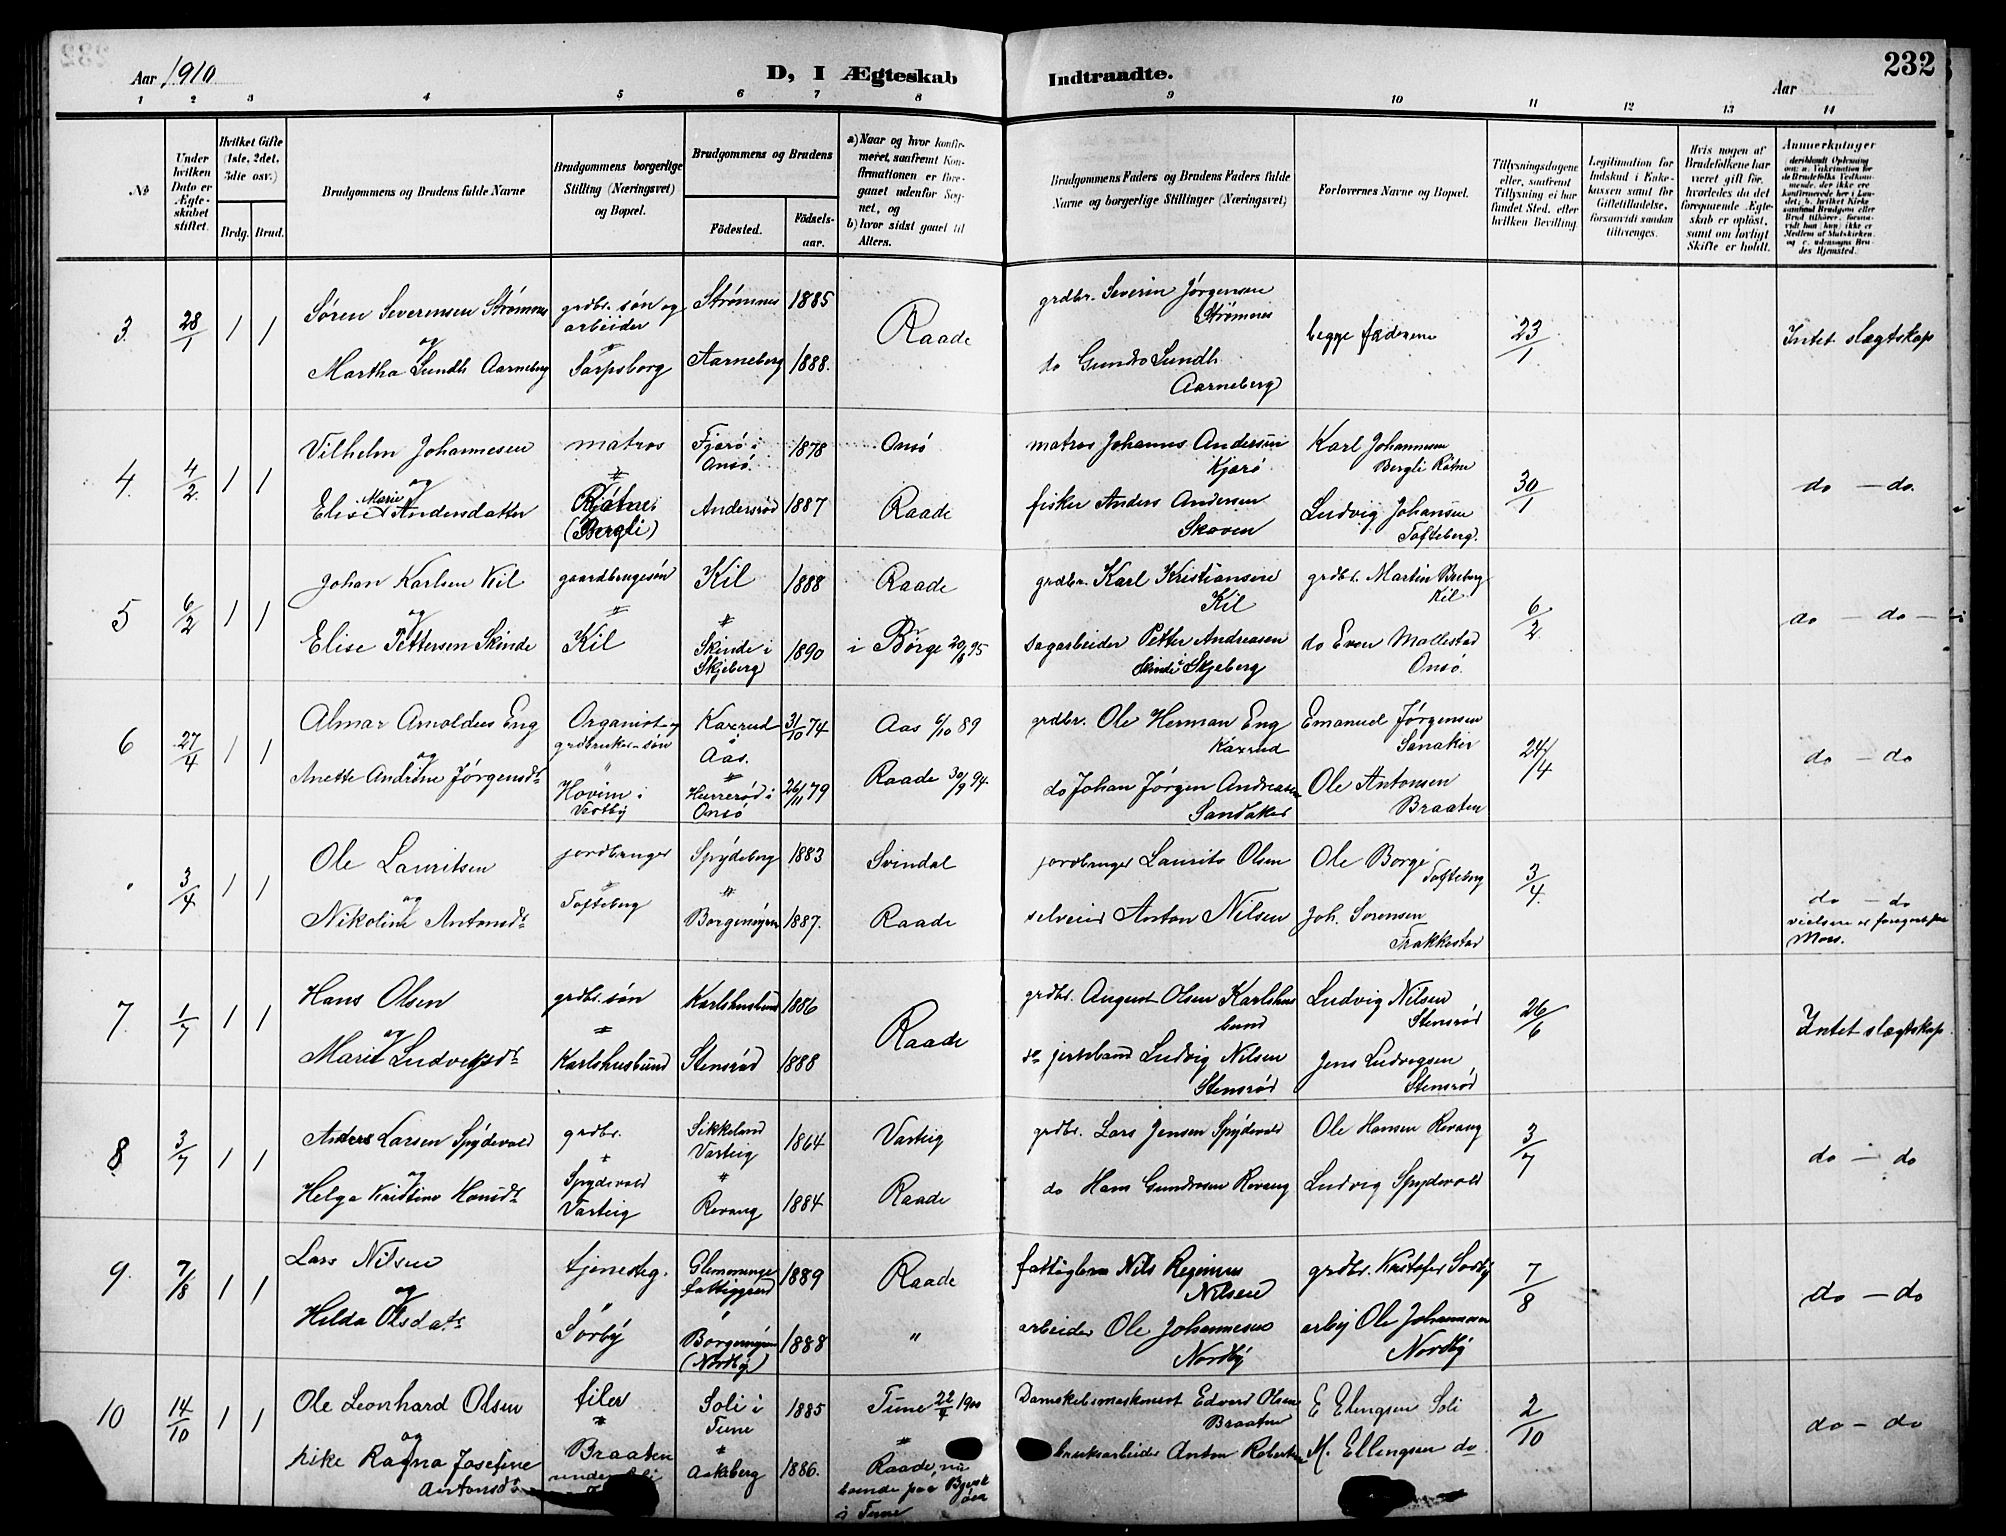 232
Aar 1910
D, I Ægteskab Indtraadte.
Aar
1 2 3 4 5 6 7 8 9 10 11 12 13 14
No
Under hvilken Dato er Ægteskabet stiftet.
Hvilket Gifte (1ste, 2det, 3die osv.)
Brdg. Brud.
Brudgommens og Brudens fulde Navne
Brudgommens borgerlige Stilling (Næringsvei) og Bopæl.
Brudgommens og Brudens
Födested.
Födselsaar.
a) Naar og hvor konfirmeret, saafremt Konfirmationen er foregaaet udenfor Sognet, og
b) hvor sidst gaaet til Alters.
Brudgommens Faders og Brudens Faders fulde Navne og borgerlige Stillinger (Næringsvei)
Forlovernes Navne og Bopæl.
Tillysningsdagene eller, saafremt Tillysning ei har fundet Sted, efter hvilken Bevilling.
Legitimation for Indskud i Enkekassen samt for Giftetilladelse, forsaavidt saadan tiltrænges.
Hvis nogen af Brudefolkene har været gift för, hvorledes da det foregaaende Ægteskab er oplöst, samt om lovligt Skifte er holdt.
Anmerkninger
3. 28/1 1 1
Søren Severensen Strømnes
og
Martha Sundh Aarneberg
grdbr. søn og
arbeider
Sarpsborg
Strømnes 1885
Aarneberg 1888.
Raade
grdbr. Severin Jørgensen
Strømnes
do Gundro Sundh
Aarneberg
begge fædrene
23/1
Intet slægtskap
4. 4/2 1 1
Vilhelm Johannesen
og
Elise Marie Andersdatter
matros
(Bergli)
Onsö 1878
Andersrød 1887
Onsö
Raade
matros Johannes Andersen
Kjærö
fisker Anders Andersen
Skoven
Karl Johannesen
Bergli
Ludvig Johansen
Tofteberg.
30/1
do - do.
5 6/2 1 1
Johan Karlsen Kil
og
Elise Pettersen Skinde
gaardbrugesön
Kil
Kil 1888
Skinde i
Skjeberg 1890
Raade
i Børge
grdbr. Karl Kristiansen
Kil
sagarbeider Petter Andreasen
Skinde i Skjeberg
grdbr. Martin
Kil
do Even Mollestad
Onsö
6/2
do - do
6 27/4 1 1
Almar Arnoldus Eng
og
Anette Andrine Jørgensdt
Organist og
grdbruker-sön
Hovim i
Vestby
Kaxrud
Aas. 31/10 74
Hurrerød i
Onsö 26/11 79
Aas 6/10 89
Raade 30/9 94
grdbr. Ole Herman Eng
Kaxrud
do Johan Jørgen Andreasen
Sandaker
Emanuel Jørgensen
Sanaker
Ole Antonsen
Braaten
24/4
do - do
3/4 1 1
Ole Lauritsen
og
Nikoline Antonsdt
jordbruger
Tofteberg
Spydeberg 1883
Borgemyren 1887.
Svindal
Raade
jordbruger Laurits Olsen
selveier Anton Nilsen
Ole Borge
Tofteberg
Joh. Sorensen
Trakkestad
3/4
do - do
Moss.
7. 1/7 1 1
Hans Olsen
og
Marie Ludvigsdt
grdbr. søn
Karlshusbund
Karlshusbund 1886
Stensrød 1888
Raade
grdbr. August Olsen Karlshus
bund
Ludvig Nilsen
Stensrød
Ludvig Nilsen
Stensrød
Jens Ludvigsen
Stensrød
26/6
Intet slægtskap.
8. 3/7 1 1
Anders Larsen Spydevold
og
Helga Kristine Hansdt
grdbr.
Spydevold
Varteig
Sikkeland
Varteig 1864
Revang 1884
Varteig
Raade
grdbr. Lars Jensen Spydevold
do Hans Gundresen Revang
Ole Hansen Revang
Ludvig Spydevold
3/7
do - do
9. 7/8 1 1
Lars Nilsen
og
Hilda Olsdatr
tjenesteg.
Sørby
Glemminge
fattiggaard 1889
Borgemyren
(Nordby) 1888
Raade
"
Nils
Nilsen
arbeider Ole Johannesen
Nordby
grdbr. Kristofer Sørby
arbej Ole Johannesen
Nordby
7/8
do - do
10 14/10 1 1
Ole Leonhard Olsen
og
Ragna Josefine
Antonsdt
filer
Braaten
Soli i
Tune 1885
Aakeberg 1886.
Tune 22/4 1900
Raade, nu
boende paa
i Tune
Edvard Olsen
Braaten
bruksarbeider Anton
E Elingsen Soli
M. Ellingsen do
2/10
do - do